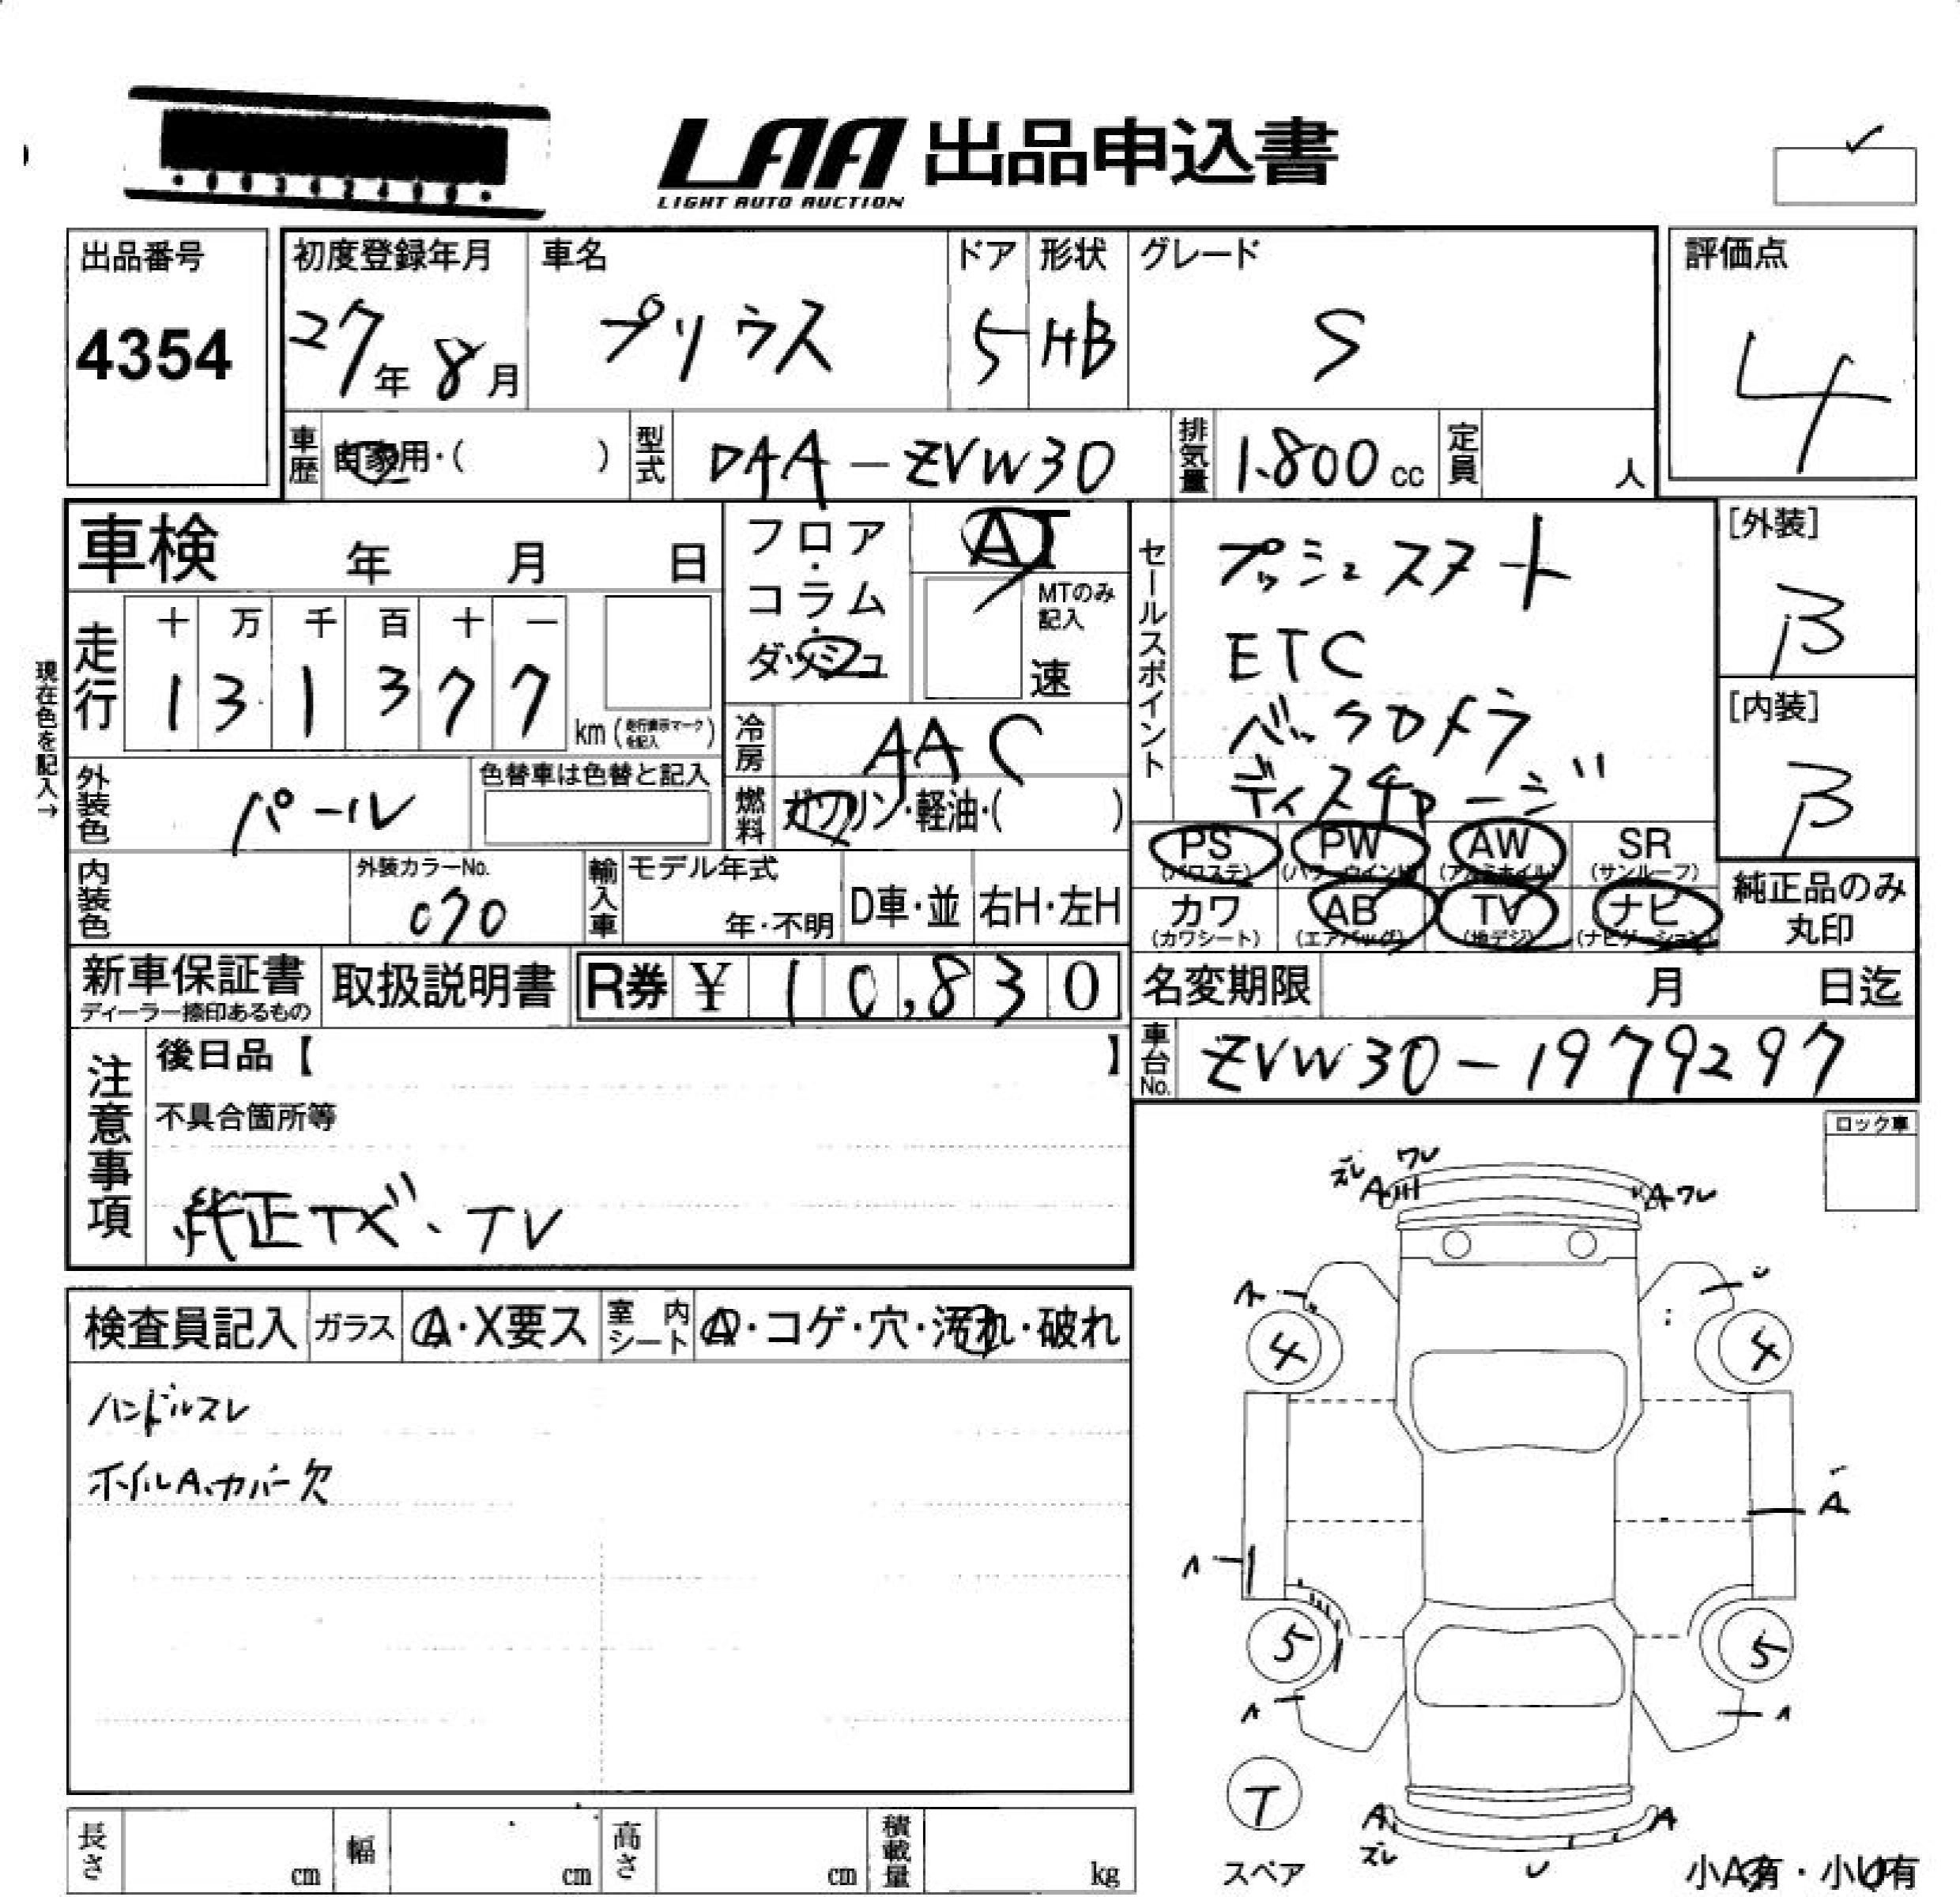 LAA 出品申込書
LIGHT AUTO AUCTION
出品番号
4354
初度登録年月
27年 8月
車名
プリウス
ドア
5
形状
HB
グレード
S
評価点
4
車歴
自家用・( )
型式
DAA-ZVW30
排気量
1.800 cc
定員
人
車検 年 月 日
フロア・コラム・ダッシュ
AT
MTのみ記入
速
セールスポイント
プッシュスタート
ETC
バックカメラ
ディスチャージ
[外装]
B
[内装]
B
現在色を記入→
走行
十 万 千 百 十 一
1 3 1 3 7 7
km (走行表示マークを記入)
冷房
AAC
燃料
ガソリン・軽油・( )
外装色
パール
色替車は色替と記入
内装色
外装カラーNo.
070
輸入車
モデル年式
年・不明
D車・並
右H・左H
PS (パワステ)
PW (パワーウインド)
AW (アルミホイル)
SR (サンルーフ)
カワ (カワシート)
AB (エアバッグ)
TV (地デジ)
ナビ (ナビゲーション)
純正品のみ丸印
新車保証書
ディーラー捺印あるもの
取扱説明書
R券 ¥ 10,830
名変期限 月 日迄
車台No.
ZVW30-1979297
注意事項
後日品【 】
不具合箇所等
純正ナビ、TV
ロック車
検査員記入
ガラス
A・X要ス
室内シート
A・コゲ・穴・汚れ・破れ
ハンドルスレ
ホイルA、カバー欠
ズレ ワレ
A
A ワレ
4
4
A
5
5
T
スペア
A
A
ズレ
小A有・小U有
長さ cm
幅 cm
高さ cm
積載量 kg